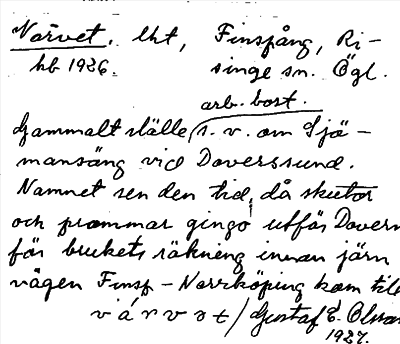 Narvet, lht, Finspång, Ri-
hb 1926. singe sn. Ögl.
arb. bost.
Gammalt ställe s. v. om Sjö-
mansäng vid Doverssund.
Namnet sen den tid, då skutor
och prammar gingo utför Dovern
för brukets räkning innan järn
vägen Finsp - Norrköping kom till
Gustaf E. Olsson
1927.